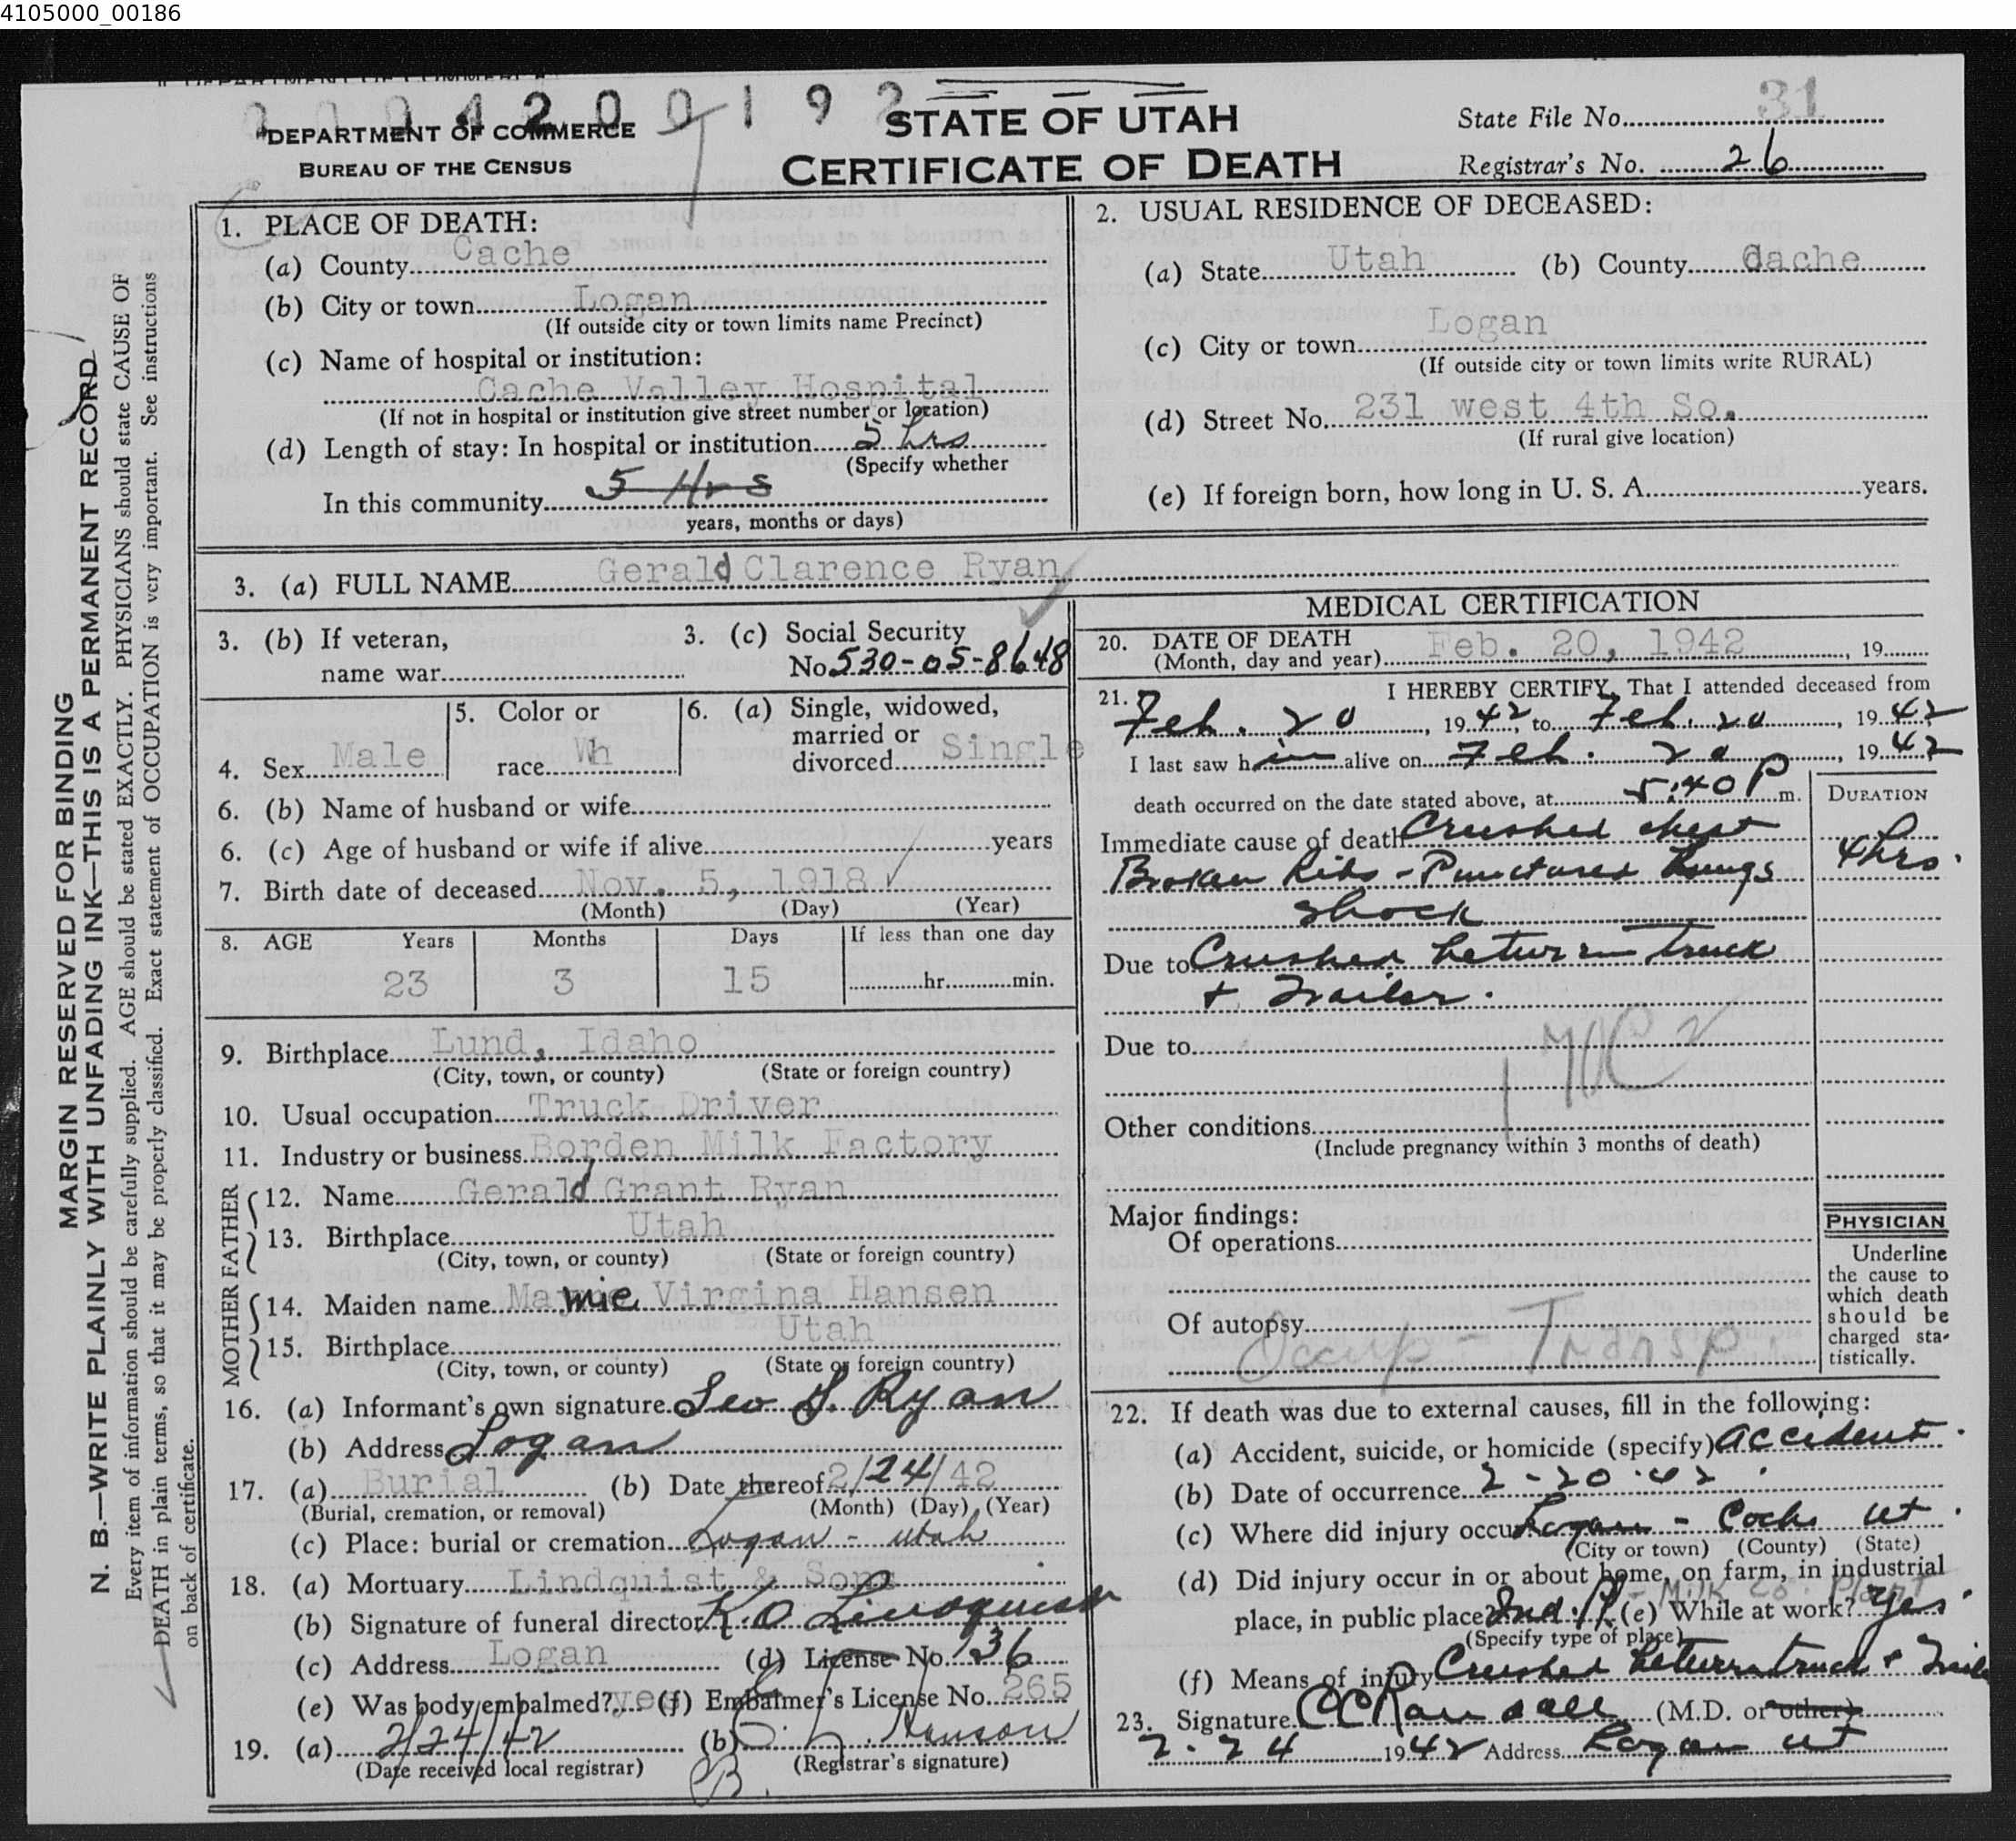 4105000_00186
DEPARTMENT OF COMMERCE
BUREAU OF THE CENSUS
STATE OF UTAH
CERTIFICATE OF DEATH
State File No. 31
Registrar's No. 26
MARGIN RESERVED FOR BINDING
N. B.—WRITE PLAINLY WITH UNFADING INK—THIS IS A PERMANENT RECORD
Every item of information should be carefully supplied. AGE should be stated EXACTLY. PHYSICIANS should state CAUSE OF
DEATH in plain terms, so that it may be properly classified. Exact statement of OCCUPATION is very important. See instructions
on back of certificate.
1. PLACE OF DEATH:
(a) County Cache
(b) City or town Logan
(If outside city or town limits name Precinct)
(c) Name of hospital or institution:
Cache Valley Hospital
(If not in hospital or institution give street number or location)
(d) Length of stay: In hospital or institution 5 hrs
(Specify whether
In this community 5 Hrs
years, months or days)
2. USUAL RESIDENCE OF DECEASED:
(a) State Utah (b) County Cache
(c) City or town Logan
(If outside city or town limits write RURAL)
(d) Street No. 231 west 4th So.
(If rural give location)
(e) If foreign born, how long in U. S. A. years.
3. (a) FULL NAME Gerald Clarence Ryan
3. (b) If veteran,
name war
3. (c) Social Security
No. 530-05-8648
4. Sex Male
5. Color or
race Wh
6. (a) Single, widowed,
married or
divorced Single
6. (b) Name of husband or wife
6. (c) Age of husband or wife if alive years
7. Birth date of deceased Nov. 5, 1918
(Month) (Day) (Year)
8. AGE Years Months Days If less than one day
23 3 15 hr. min.
9. Birthplace Lund, Idaho
(City, town, or county) (State or foreign country)
10. Usual occupation Truck Driver
11. Industry or business Borden Milk Factory
FATHER
12. Name Gerald Grant Ryan
13. Birthplace Utah
(City, town, or county) (State or foreign country)
MOTHER
14. Maiden name Mamie Virgina Hansen
15. Birthplace Utah
(City, town, or county) (State or foreign country)
16. (a) Informant's own signature Leo G. Ryan
(b) Address Logan
17. (a) Burial (b) Date thereof 2/24/42
(Burial, cremation, or removal) (Month) (Day) (Year)
(c) Place: burial or cremation Logan - Utah
18. (a) Mortuary Lindquist & Sons
(b) Signature of funeral director K. O. Lindquist
(c) Address Logan (d) License No. 136
(e) Was body embalmed? yes (f) Embalmer's License No. 265
19. (a) 2/24/42 (b) Hanson
(Date received local registrar) (Registrar's signature)
MEDICAL CERTIFICATION
20. DATE OF DEATH
(Month, day and year) Feb. 20, 1942, 19
21. I HEREBY CERTIFY, That I attended deceased from
Feb. 20, 1942, to Feb. 20, 1942
I last saw him alive on Feb. 20, 1942
death occurred on the date stated above, at 5:40 P m.
DURATION
Immediate cause of death Crushed chest
Broken Ribs - Punctured Lungs 4 hrs.
Shock
Due to Crushed between truck
+ Trailer.
Due to
Other conditions
(Include pregnancy within 3 months of death)
Major findings:
Of operations
Of autopsy
Occup - Transp.
PHYSICIAN
Underline
the cause to
which death
should be
charged sta-
tistically.
22. If death was due to external causes, fill in the following:
(a) Accident, suicide, or homicide (specify) accident.
(b) Date of occurrence 2-20-42
(c) Where did injury occur Logan - Cache Ut.
(City or town) (County) (State)
(d) Did injury occur in or about home, on farm, in industrial
- Milk Co. Plant
place, in public place? Ind. Pl (e) While at work? Yes.
(Specify type of place)
(f) Means of injury Crushed between truck + Trailer
23. Signature CC Randall (M.D. or other)
2-24 1942 Address Logan Ut